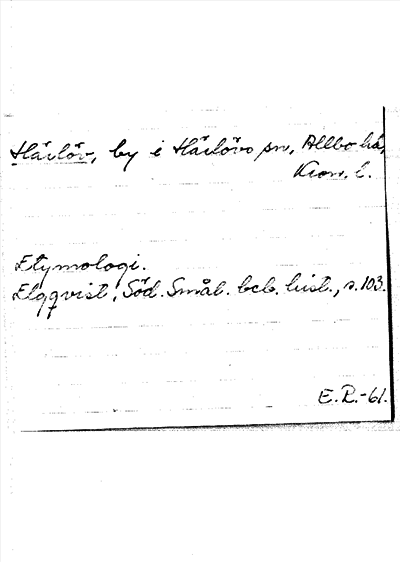 Härlöv, by i Härlövs sn, Allbo hd,
Kron. l.
Etymologi.
Elgqvist, Söd. Smål. beb. hist., s. 103.
E.R.-61.